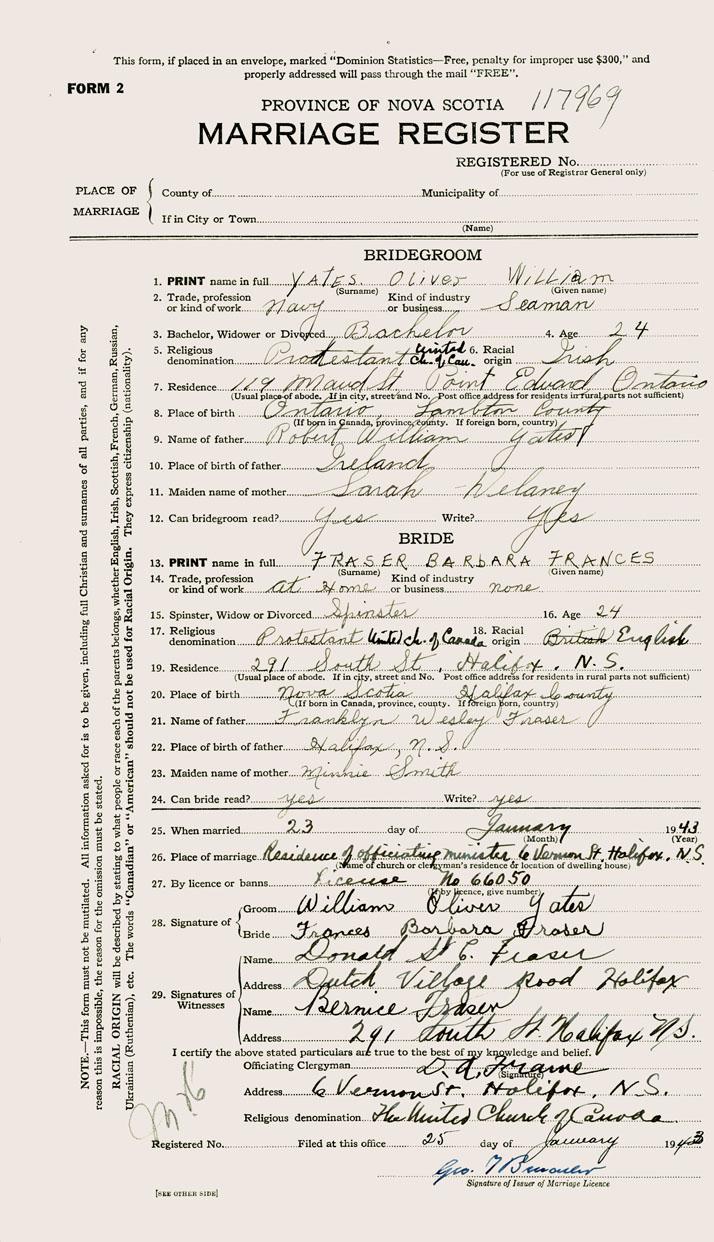 This form, if placed in an envelope, marked "Dominion Statistics—Free, penalty for improper use $300," and
properly addressed will pass through the mail "FREE".
FORM 2
PROVINCE OF NOVA SCOTIA 117969
MARRIAGE REGISTER
REGISTERED No.
(For use of Registrar General only)
PLACE OF MARRIAGE
County of Municipality of
If in City or Town
(Name)
BRIDEGROOM
1. PRINT name in full YATES. Oliver William
(Surname) (Given name)
2. Trade, profession or kind of work Navy Kind of industry or business Seaman
3. Bachelor, Widower or Divorced Bachelor 4. Age 24
5. Religious denomination Protestant United Ch. of Can. 6. Racial origin Irish
7. Residence 119 Maud St. Point Edward Ontario
(Usual place of abode. If in city, street and No. Post office address for residents in rural parts not sufficient)
8. Place of birth Ontario, Lambton County
(If born in Canada, province, county. If foreign born, country)
9. Name of father Robert William Yates
10. Place of birth of father Ireland
11. Maiden name of mother Sarah Delaney
12. Can bridegroom read? Yes Write? Yes
BRIDE
13. PRINT name in full FRASER BARBARA FRANCES
(Surname) (Given name)
14. Trade, profession or kind of work at Home Kind of industry or business none
15. Spinster, Widow or Divorced Spinster 16. Age 24
17. Religious denomination Protestant United Ch. of Canada 18. Racial origin British English
19. Residence 291 South St, Halifax. N.S.
(Usual place of abode. If in city, street and No. Post office address for residents in rural parts not sufficient)
20. Place of birth Nova Scotia Halifax County
(If born in Canada, province, county. If foreign born, country)
21. Name of father Franklyn Wesley Fraser
22. Place of birth of father Halifax, N.S.
23. Maiden name of mother Minnie Smith
24. Can bride read? yes Write? yes
25. When married 23 day of January 1943
(Month) (Year)
26. Place of marriage Residence of officiating minister 6 Vernon St. Halifax, N.S.
(Name of church or clergyman's residence or location of dwelling house)
27. By licence or banns License No 66050
(If by licence, give number)
28. Signature of
Groom William Oliver Yates
Bride Frances Barbara Fraser
29. Signatures of Witnesses
Name Donald St C. Fraser
Address Dutch Village Road Halifax
Name Bernice Fraser
Address 291 South St. Halifax N.S.
I certify the above stated particulars are true to the best of my knowledge and belief.
Officiating Clergyman D. A. Frame
(Signature)
Address 6 Vernon St. Halifax, N.S.
Religious denomination The United Church of Canada
Registered No. Filed at this office 25 day of January 1943
Geo.
Signature of Issuer of Marriage Licence
[SEE OTHER SIDE]
NOTE.—This form must not be mutilated. All information asked for is to be given, including full Christian and surnames of all parties, and if for any
reason this is impossible, the reason for the omission must be stated.
RACIAL ORIGIN will be described by stating to what people or race each of the parents belongs, whether English, Irish, Scottish, French, German, Russian,
Ukrainian (Ruthenian), etc. The words "Canadian" or "American" should not be used for Racial Origin. They express citizenship (nationality).